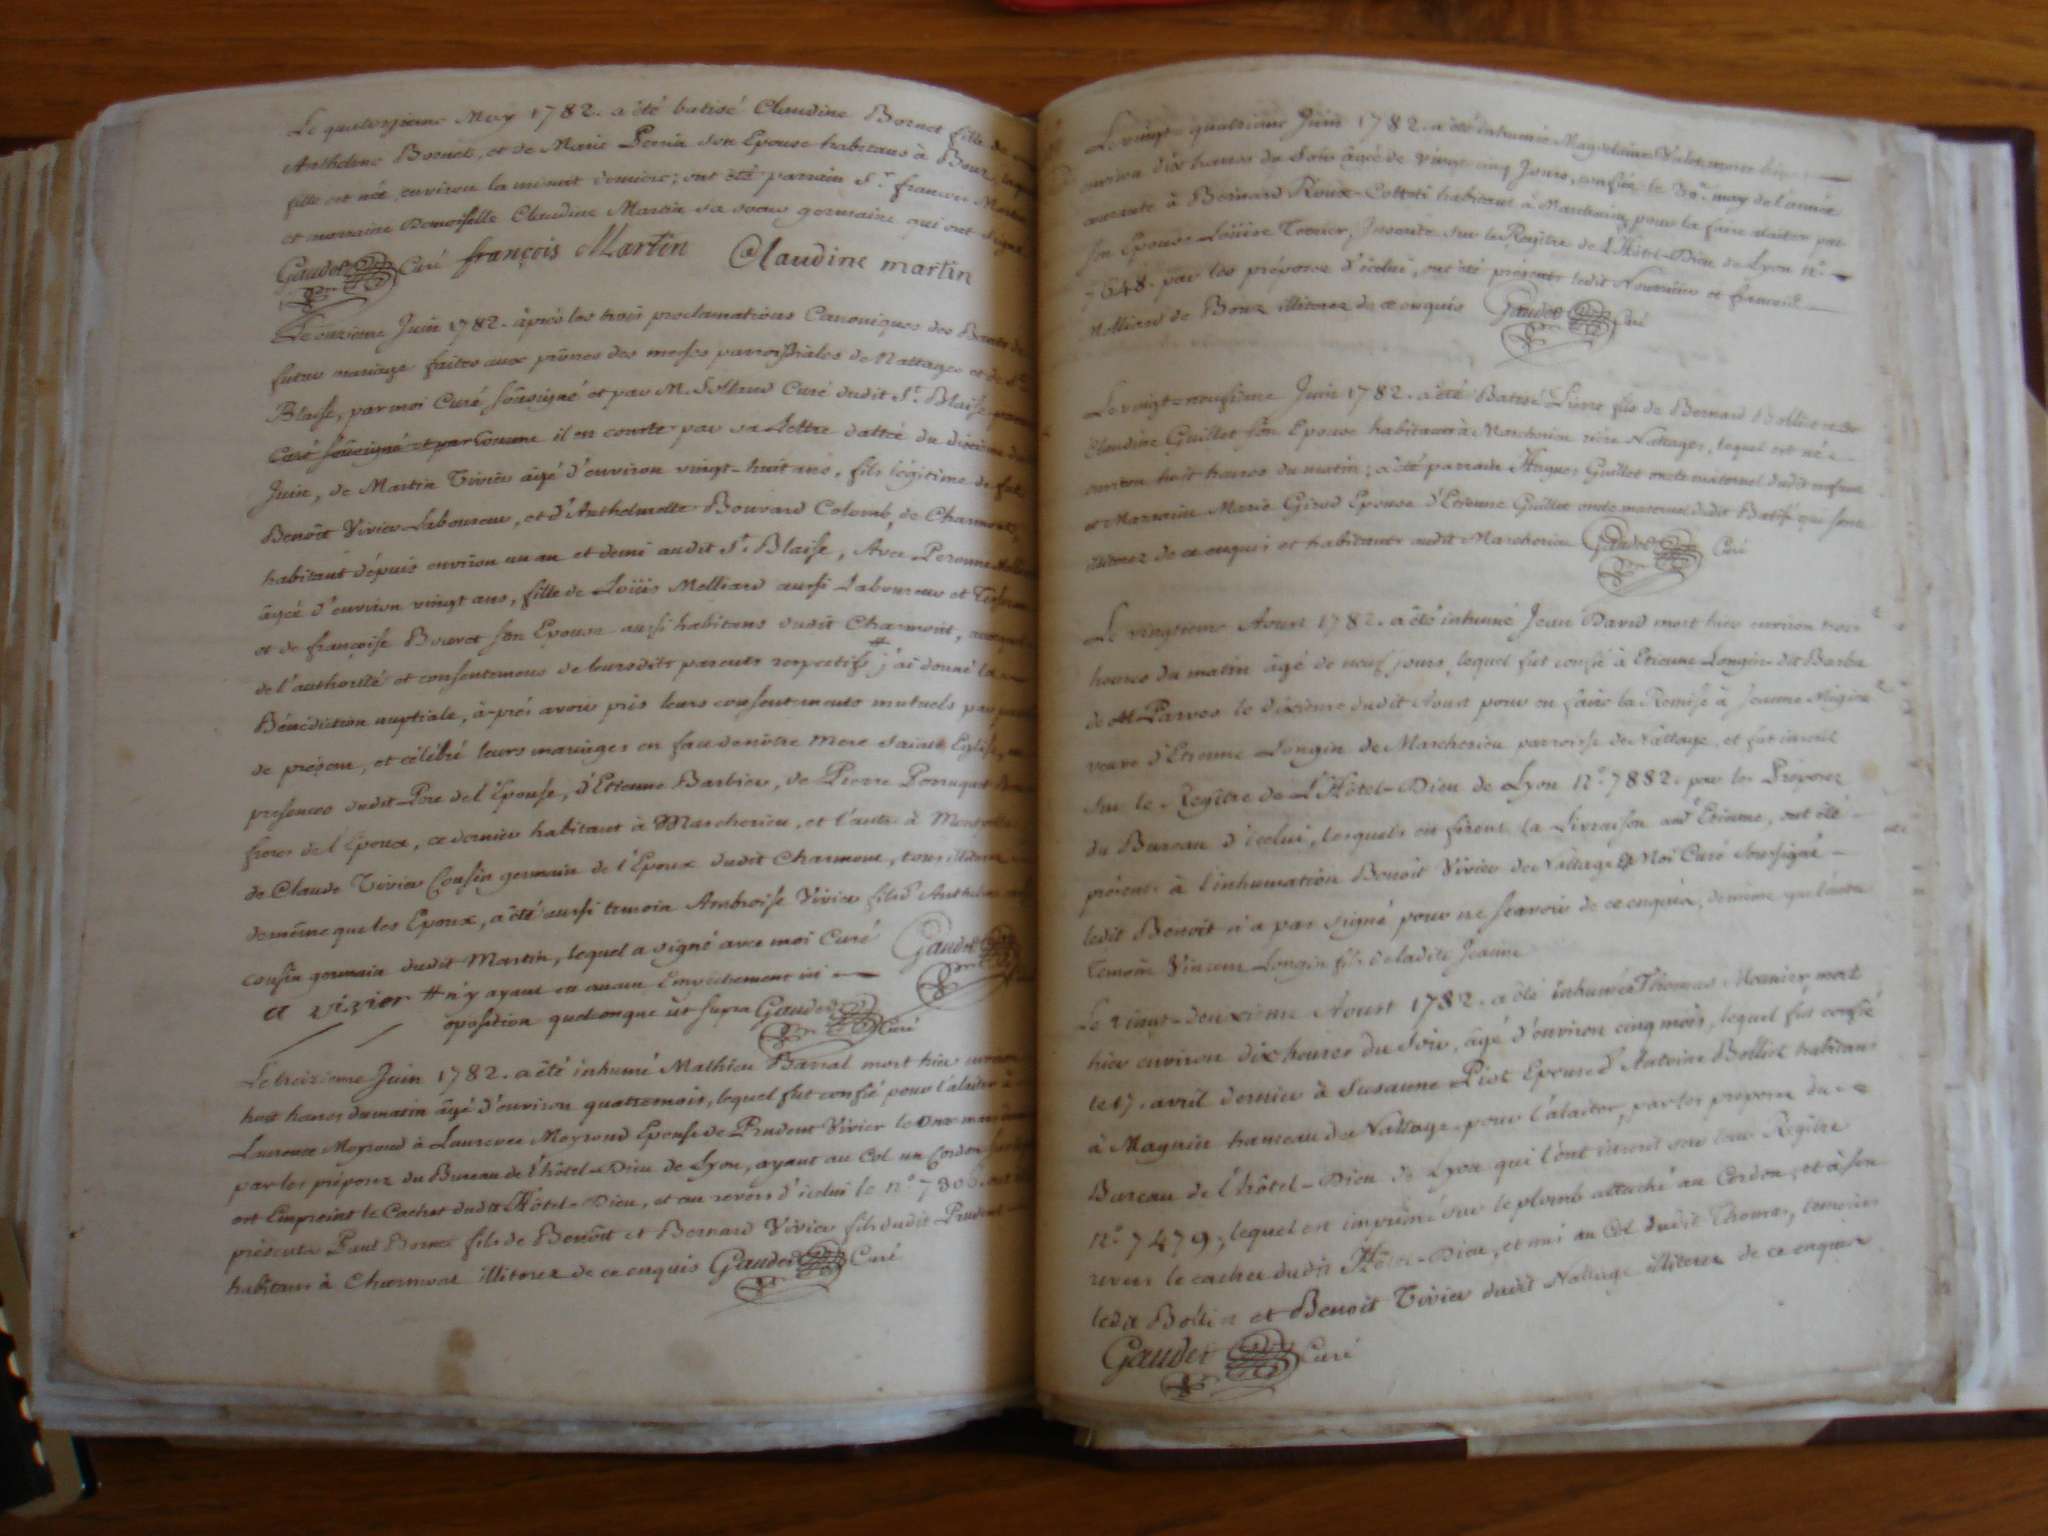 Le quatorzieme May 1782. a été batisé Claudine Bornet fille de
Anthelme Bornet, et de Marie Perrin son Epouse habitans à Bouz, laquelle
fille est née environ la minuit derniere; ont été parrain Sr. francois Martin
et marraine Demoiselle Claudine Martin sa soeur germaine qui ont signé
Gaudet Curé françois Martin Claudine martin
Le onzieme Juin 1782. àprès les trois proclamations Canoniques des Bants de
futur mariage faites aux prônes des messes parroissiales de Nattages et de St.
Blaise, par moi Curé soussigné et par M. Curé dudit St. Blaise
Curé soussigné et par comme il en conste par sa Lettre dattée du dixieme de
Juin, de Martin Vivier âgé d'environ vingt-huit ans, fils légitime de feu
Benoît Vivier Laboureur, et d'Anthelmette Bouvard Colomb, de Charmont,
habitant dépuis environ un an et demi audit St. Blaise, Avec Peronne
âgée d'environ vingt ans, fille de Loüis Melliand aussi Laboureur et
et de françoise Bouvet son Epouse aussi habitans dudit Charmont,
de l'authorité et consentemens de leursdits parents respectifs # j'ai donné la
Bénédiction nuptiale, à-près avoir pris leurs consentements mutuels par paroles
de présent, et célébré leurs mariages en face de nôtre Mere Sainte Eglise, en
presences dudit Pere de l'Epouse, d'Etienne Barbier, de Pierre Perruquet
freres de l'Epoux, ce dernier habitant à Marcherieu, et l'autre à
de Claude Vivier Cousin germain de l'Epoux dudit Charmont, tous illiteres
de même que les Epoux, a été aussi temoin Ambroise Vivier fils d'Anthelme
cousin germain dudit Martin, lequel a signé avec moi Curé Gaudet
a vivier # n'y ayant eu aucun Empéchement ni
oposition quelconque ut supra Gaudet Curé
Le treizieme Juin 1782. a été inhumé Mathieu Barral mort hier environ
huit heures du matin âgé d'environ quatre mois, lequel fut confié pour l'alaiter à
Laurence Meyroud à Laurence Meyroud Epouse de Prudent Vivier le onze mars
par les préposez du Bureau de l'hôtel-Dieu de Lyon, ayant au Col un Cordon
est Empreint le Cachet dudit Hôtel-Dieu, et au revers d'icelui le n°. 7306
présents Paul Bornet fils de Benoît et Bernard Vivier fils dudit Prudent
habitans à Charmont illiterez de ce enquis Gaudet Curé
Le vingt-quatrieme Juin 1782. a été inhumée Magdelaine morte hier
environ dix heures du Soir âgée de vingt cinq Jours, confiée le 30e. may de l'année
courante à Bernard Roux-Collet habitant à Marcherieu, pour la faire alaiter par
son Epouse Loüise Tournier, Inscrite sur le Regître de l'Hôtel-Dieu de Lyon n°.
7648. par les préposez d'icelui, ont été présents ledit Nourricier et
Melliand de Bouz illiterez de ce enquis Gaudet Curé
Le vingt-neufième Juin 1782. a été Batisé Pierre fils de Bernard et de
Claudine Guillot son Epouse habitans à Marcherieu riere Nattages, lequel est né
environ huit heures du matin; a été parrain Hugues Guillot oncle maternel dudit enfant
et Marraine Marie Girod Epouse d'Etienne Guillot oncle maternel dudit Batisé qui sont
illiterez de ce enquis et habitants audit Marcherieu Gaudet Curé
Le vingtieme Aoust 1782. a été inhumé Jean David mort hier environ trois
heures du matin âgé de neuf jours, lequel fut confié à Etienne Longin dit Barba
de Parves le dixieme dudit Aoust pour en faire la Remise à Jeanne
veuve d'Etienne Longin de Marcherieu parroisse de Nattage, et fut inscrit
sur le Regître de l'Hôtel-Dieu de Lyon n°. 7882. par les Préposez
du Bureau d'icelui, lesquels en firent la Livraison aud' Etienne, ont été
présents à l'inhumation Benoît Vivier de Nattage et Moi Curé soussigné
ledit Benoît n'a pas signé pour ne sçavoir de ce enquis, de même que l'autre
Temoin Vincent Longin fils de ladite Jeanne
Le vingt-deuxieme Aoust 1782. a été inhumé Thomas Mounier mort
hier environ dix heures du Soir, âgé d'environ cinq mois, lequel fut confié
le 17. avril dernier à Susanne Piot Epouse d'Antoine Bollier habitans
à Magnin hameau de Nattage, pour l'alaiter, par les préposez du
Bureau de l'hôtel-Dieu de Lyon qui l'ont inscrit sur leur Regître
n°. 7479, lequel est imprimé sur le plomb attaché au Cordon, et à son
revers le cachet dudit Hôtel-Dieu, et mis au Col dudit Thomas, temoins
ledit et Benoît Vivier dudit Nattage illiterez de ce enquis
Gaudet Curé